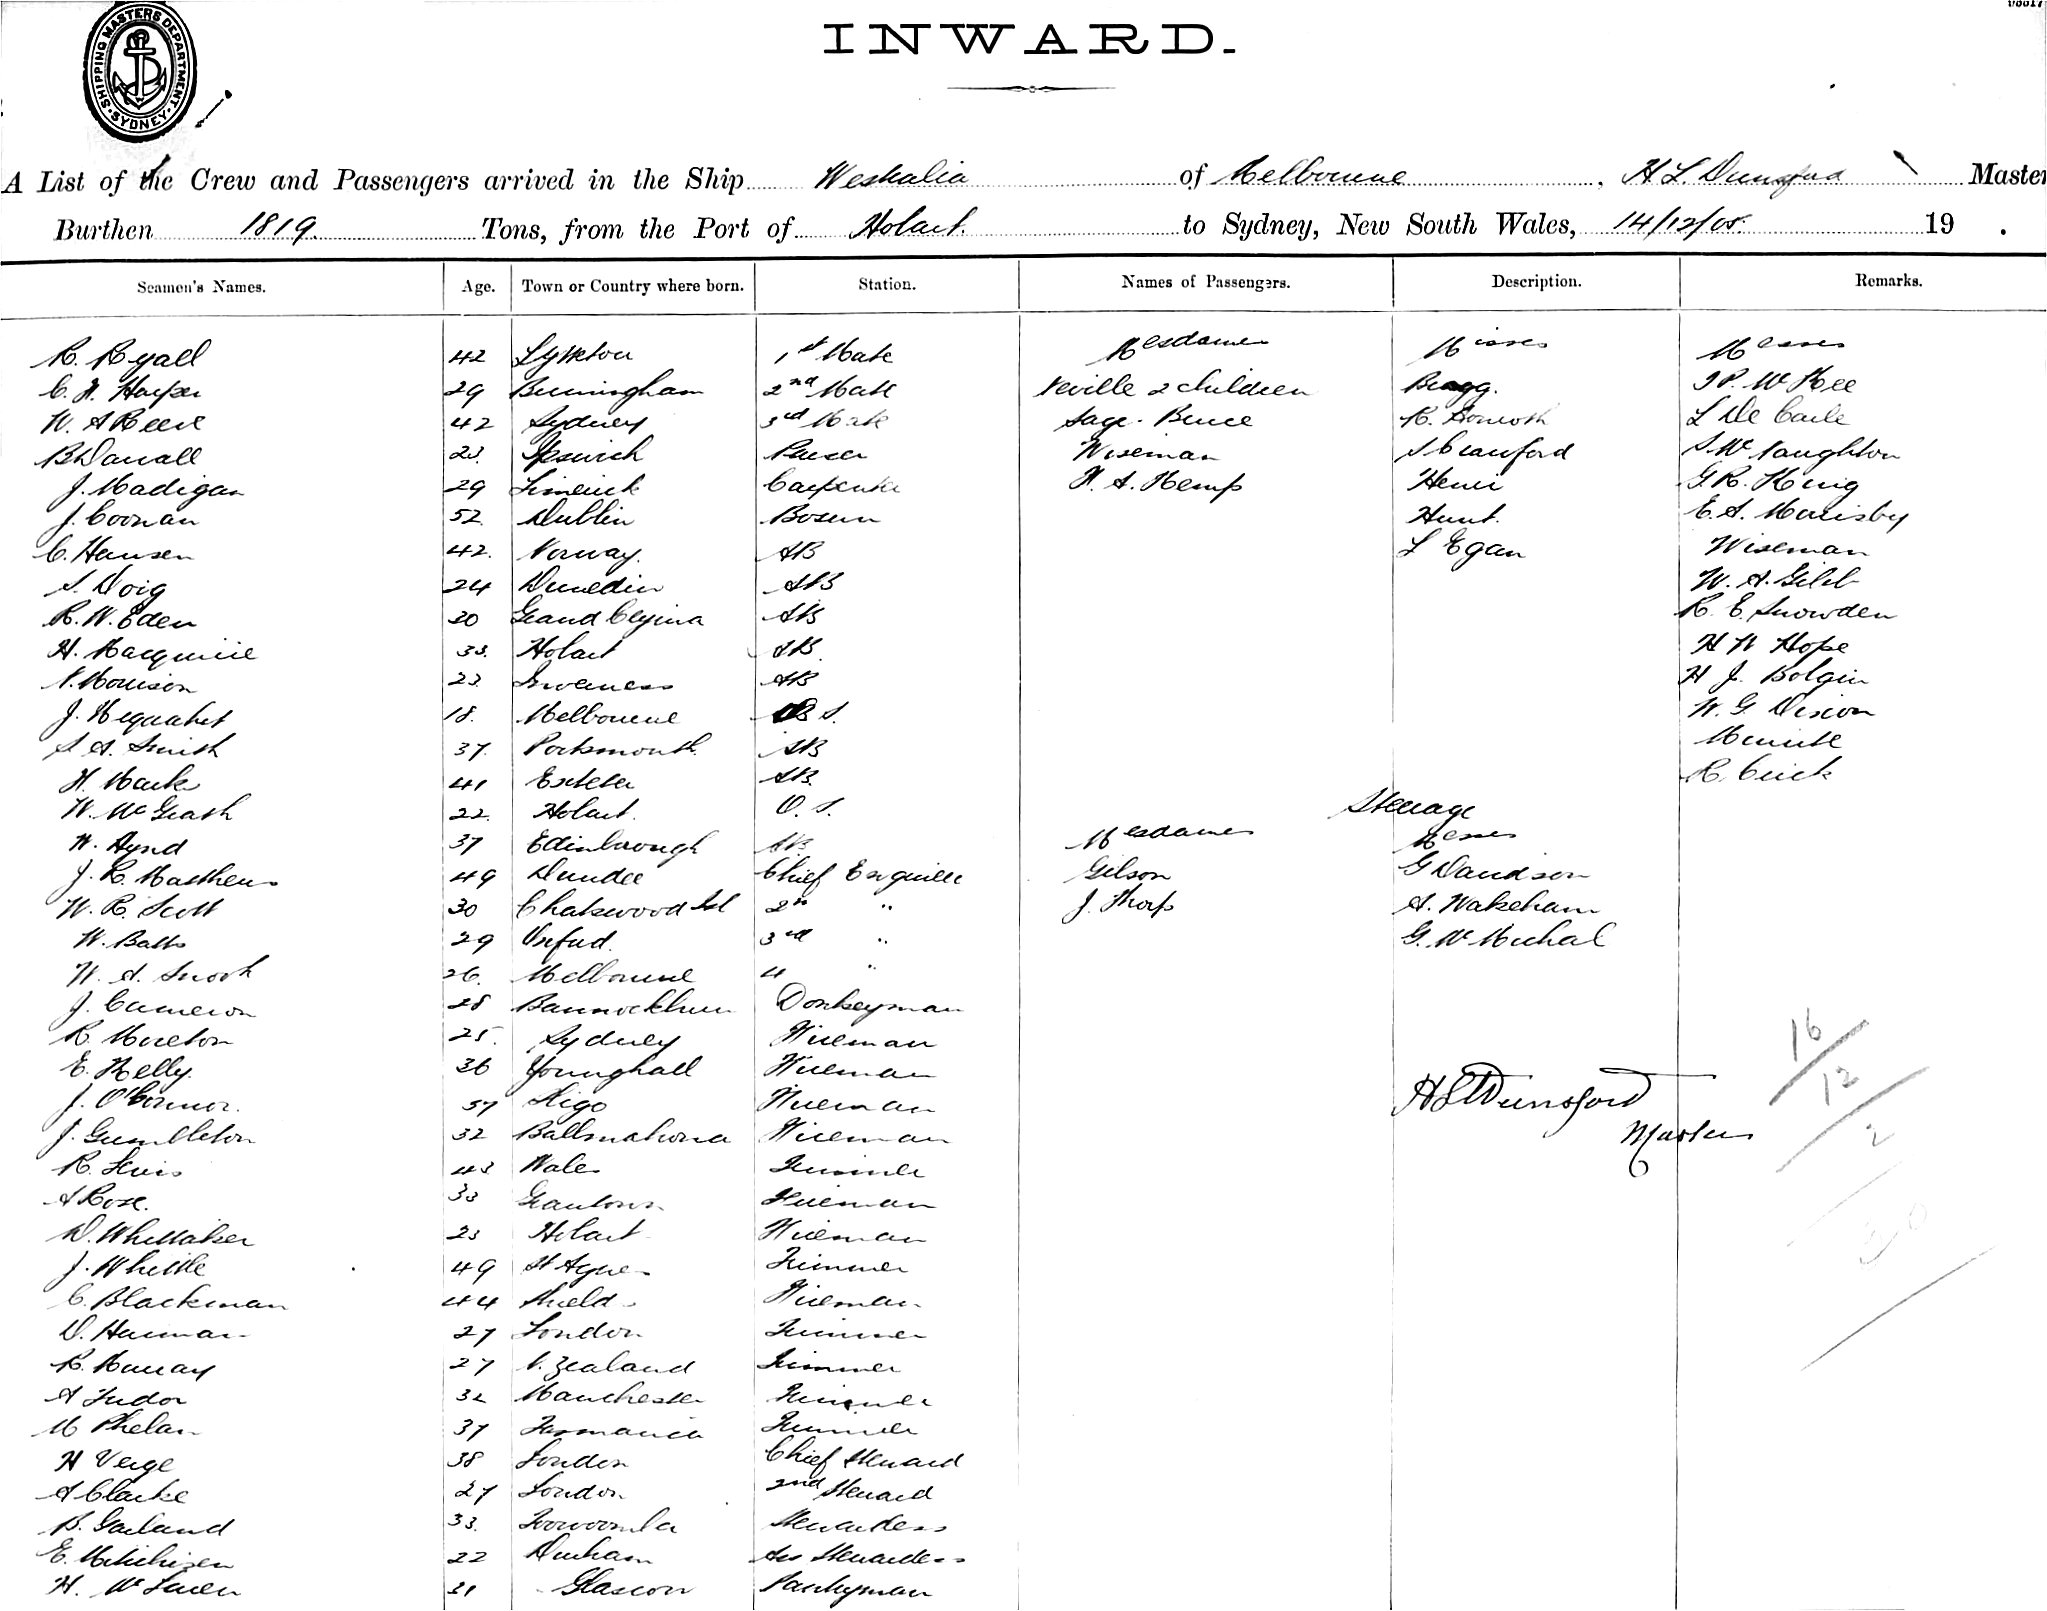 SHIPPING MASTERS DEPARTMENT
SYDNEY
INWARD.
A List of the Crew and Passengers arrived in the Ship Westralia of Melbourne, H L Dunsford Master
Burthen 1819. Tons, from the Port of Hobart. to Sydney, New South Wales, 14/12/05. 19 .
Seamen's Names. Age. Town or Country where born. Station. Names of Passengers. Description. Remarks.
R. Ryall 42 Lyttelton 1st Mate Mesdames Misses Messrs
C. H. Harper 29 Birmingham 2nd Mate Neville 2 children Bragg. McKee
W. A Reeve 42 Sydney 3rd Mate Sage. Bruce R. Howorth L De Carle
B Darvall 23. Ipswich Purser Wiseman S Crauford S. McNaughton
J. Madigan 29 Limerick Carpenter H. A. Kemp G. R. King
J. Coonan 52. Dublin Bosun Hunt. E. A. Morrisby
C. Hansen 42. Norway. AB L Egan Wiseman
S. Doig 24 Dunedin AB W. A. Gibb
R. W. Eden 20 AB R. E. Snowden
H. Macquirie 33. Hobart AB H W Hope
N. Morrison 23. Inverness AB H J. Bolgin
J. Urquahrt 18. Melbourne O S. W. G Dixon
S. A. Smith 37. Portsmouth. AB
H. Marks 41 Exeter AB. R. Crick
W. McGrath 22. Hobart. O. S. Steerage
W. Hynd 37 Edinbrough AB Mesdames Messrs
J. R. Matthews 49 Dundee Chief Engineer Gibson G Davidson
W. R. Scott 30 Chatswood 2nd " J. Thorp A. Wakeham
W. Batts 29 Oxford. 3rd " G. McMichal
W. A. Snook 26. Melbourne 4 "
J. Cameron 28 Bannockburn Donkeyman 16
R. Moreton 25. Sydney Fireman
E. Kelly. 36 Younghall Fireman 12
J. O'Connor. 37 Sligo Fireman H L Dunsford
J. Gumbleton 32 Fireman Master 2
R. Lewis 43 Wales Trimmer
A Rose. 33 Grantown Fireman 30
D. Whittaker 23 Hobart Fireman
J. Whittle 49 St Agnes Trimmer
C. Blackman 44 Shields Fireman
D. Harman 27 London Trimmer
R. Murray 27 N. Zealand Trimmer
A Tudor 32 Manchester Trimmer
M Phelan 37 Tasmania Trimmer
H Verge 38 London Chief Steward
A Clarke 27 London 2nd Steward
B. Garland 33. Toowoomba Stewardess
E. Mitchisen 22 Durham Ass Stewardess
H. McLaren 31 Glascow Pantryman